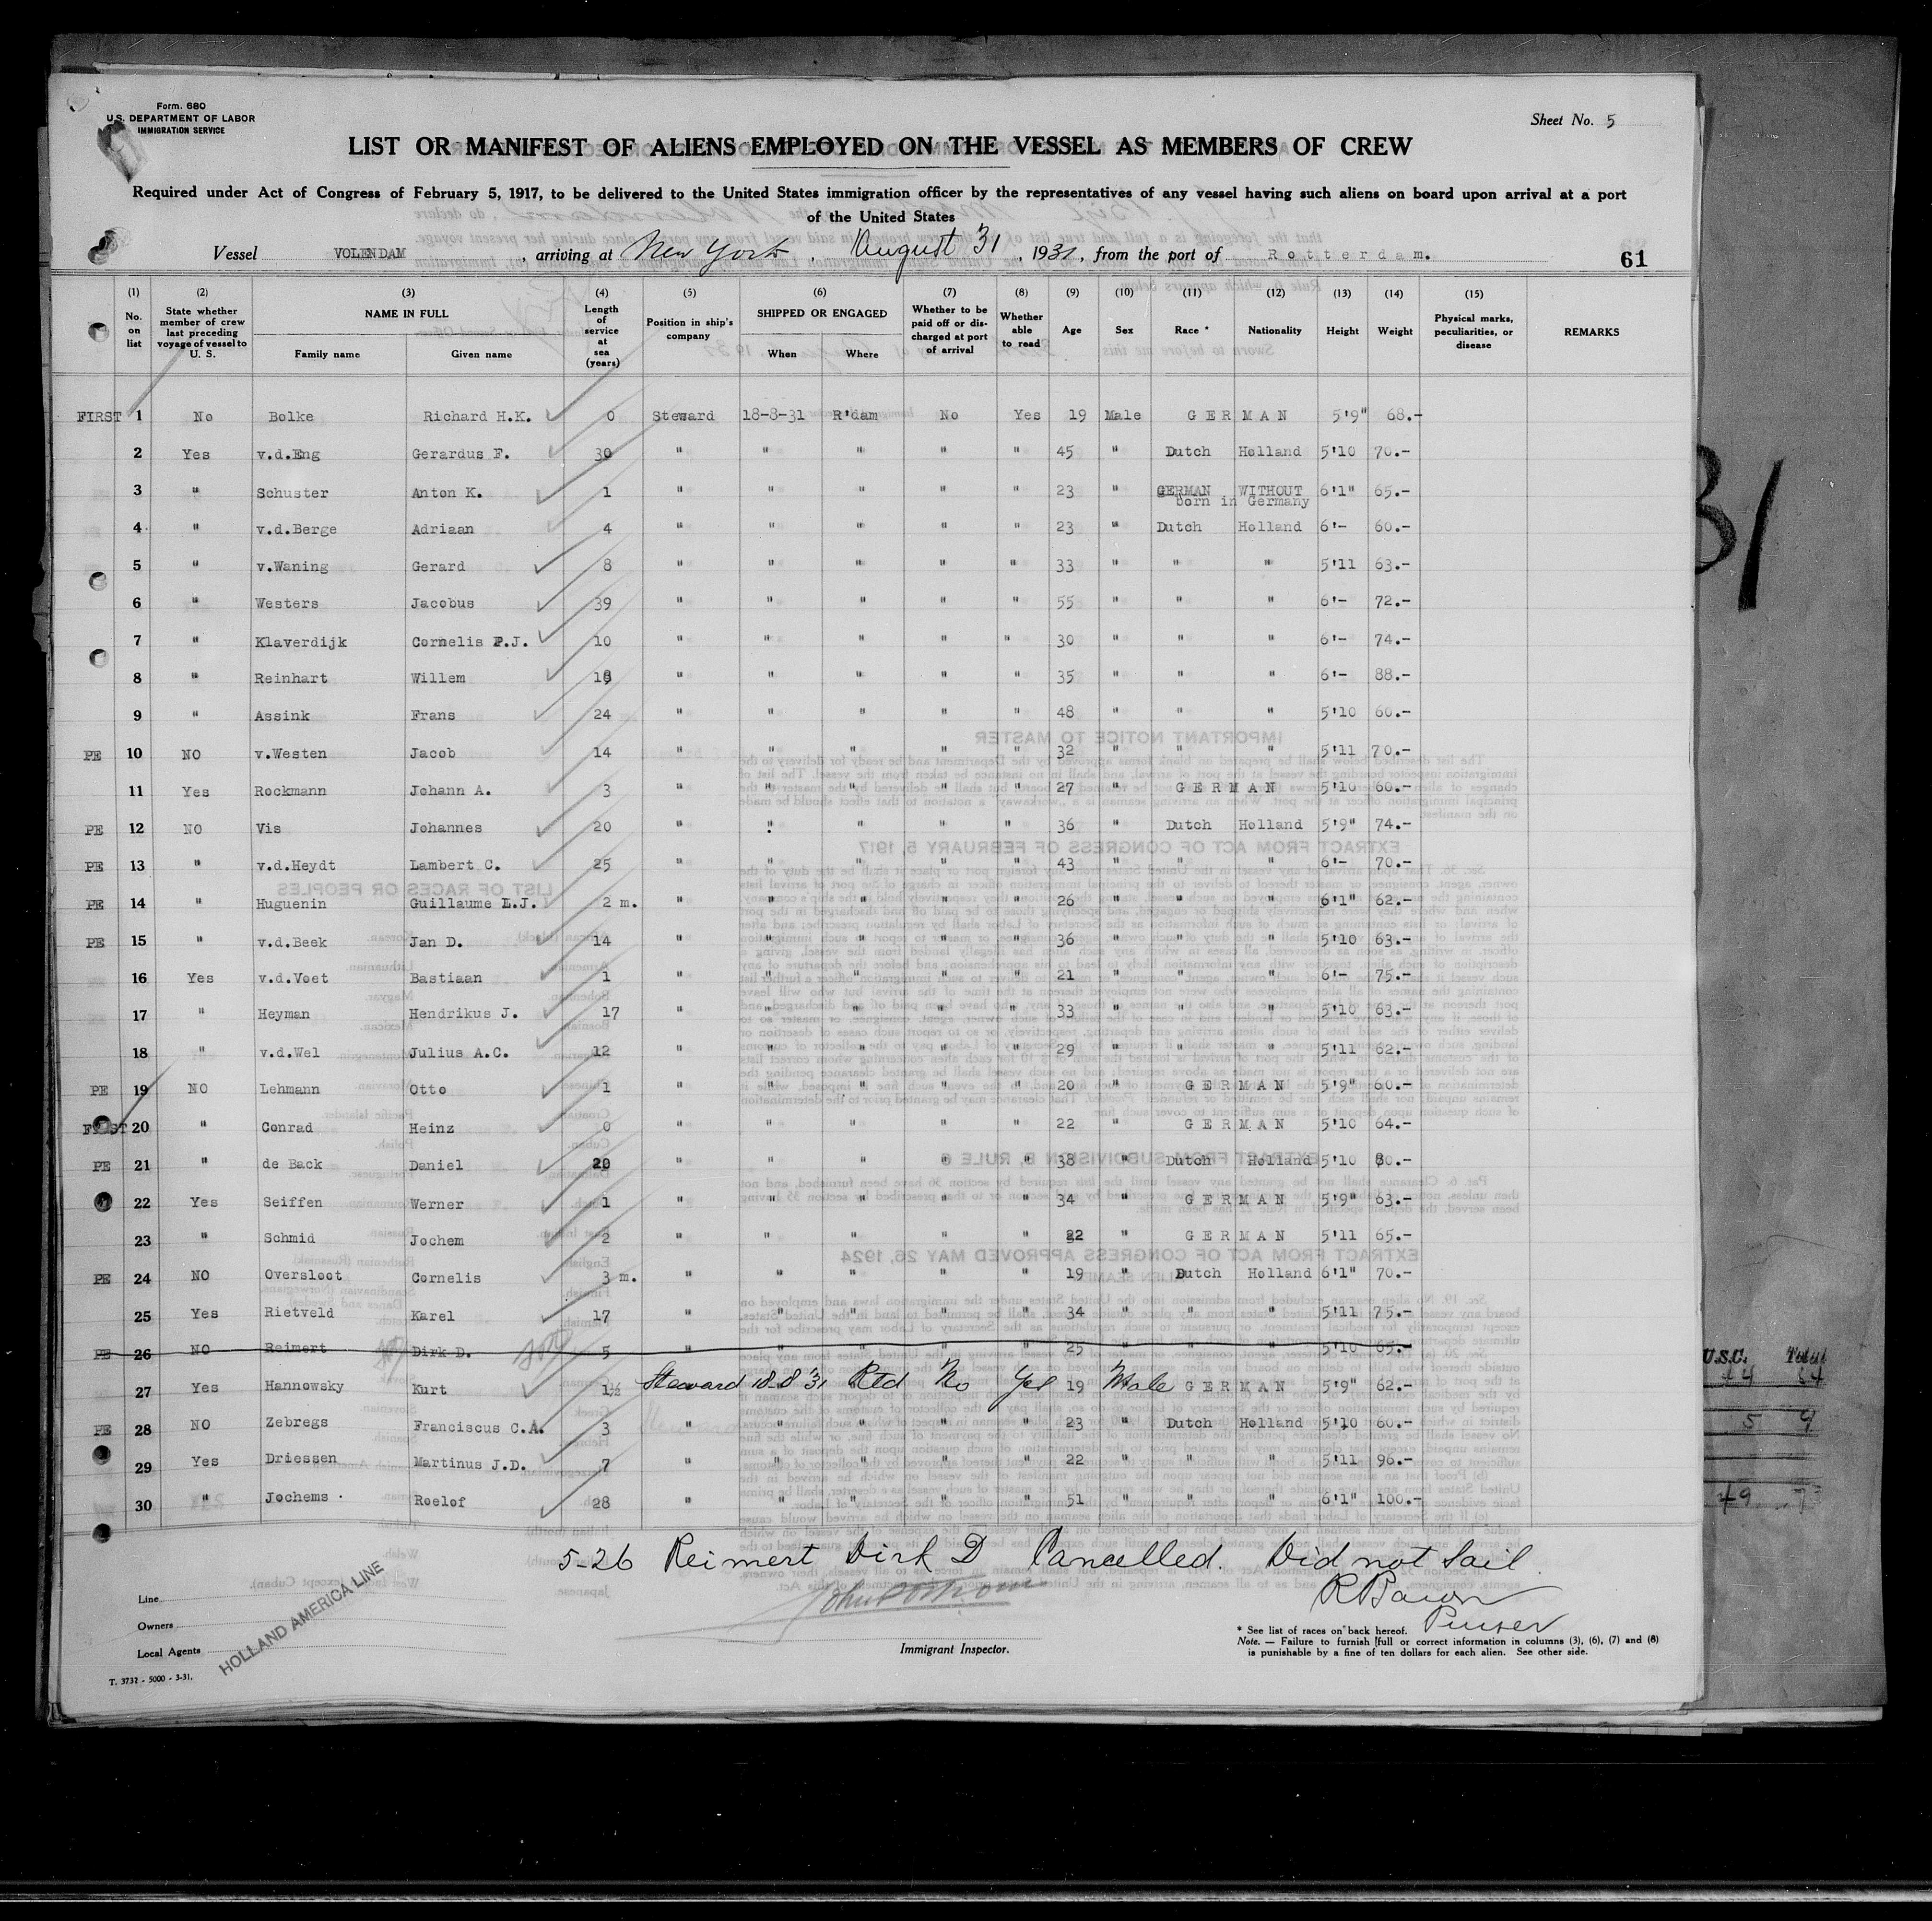 Form. 680
U.S. DEPARTMENT OF LABOR
IMMIGRATION SERVICE
Sheet No. 5
LIST OR MANIFEST OF ALIENS EMPLOYED ON THE VESSEL AS MEMBERS OF CREW
Required under Act of Congress of February 5, 1917, to be delivered to the United States immigration officer by the representatives of any vessel having such aliens on board upon arrival at a port
of the United States
Vessel VOLENDAM, arriving at New York, August 31, 1931, from the port of Rotterdam.
61
(1) No. on list (2) State whether member of crew last preceding voyage of vessel to U. S. (3) NAME IN FULL Family name Given name (4) Length of service at sea (years) (5) Position in ship's company (6) SHIPPED OR ENGAGED When Where (7) Whether to be paid off or discharged at port of arrival (8) Whether able to read (9) Age (10) Sex (11) Race * (12) Nationality (13) Height (14) Weight (15) Physical marks, peculiarities, or disease REMARKS
FIRST 1 No Bolke Richard H.K. 0 Steward 18-8-31 R'dam No Yes 19 Male GERMAN 5'9" 68.-
2 Yes v.d.Eng Gerardus F. 30 " " " " " 45 " Dutch Holland 5'10 70.-
3 " Schuster Anton K. 1 " " " " " 23 " GERMAN WITHOUT 6'1" 65.-
born in Germany
4 " v.d.Berge Adriaan 4 " " " " " 23 " Dutch Holland 6'- 60.-
5 " v.Waning Gerard 8 " " " " " 33 " " " 5'11 63.-
6 " Westers Jacobus 39 " " " " " 55 " " " 6'- 72.-
7 " Klaverdijk Cornelis P.J. 10 " " " " " 30 " " " 6'- 74.-
8 " Reinhart Willem " " " " " 35 " " " 6'- 88.-
9 " Assink Frans 24 " " " " " 48 " " " 5'10 60.-
PE 10 NO v.Westen Jacob 14 " " " " " 32 " " " 5'11 70.-
11 Yes Rockmann Johann A. 3 " " " " " 27 " GERMAN 5'10 60.-
PE 12 NO Vis Johannes 20 " " " " " 36 " Dutch Holland 5'9" 74.-
PE 13 " v.d.Heydt Lambert C. 25 " " " " " 43 " " " 6'- 70.-
PE 14 " Huguenin Guillaume L.J. 2 m. " " " " " 26 " " " 6'1" 62.-
PE 15 " v.d.Beek Jan D. 14 " " " " " 36 " " " 5'10 63.-
16 Yes v.d.Voet Bastiaan 1 " " " " " 21 " " " 6'- 75.-
17 " Heyman Hendrikus J. 17 " " " " " 33 " " " 5'10 63.-
18 " v.d.Wel Julius A.C. 12 " " " " " 29 " " " 5'11 62.-
PE 19 NO Lehmann Otto 1 " " " " " 20 " GERMAN 5'9" 60.-
FIRST 20 " Conrad Heinz 0 " " " " " 22 " GERMAN 5'10 64.-
PE 21 " de Back Daniel 20 " " " " " 38 " Dutch Holland 5'10 80.-
22 Yes Seiffen Werner 1 " " " " " 34 " GERMAN 5'9" 63.-
23 " Schmid Jochem 2 " " " " " 22 " GERMAN 5'11 65.-
PE 24 NO Oversloot Cornelis 3 m. " " " " " 19 " Dutch Holland 6'1" 70.-
25 Yes Rietveld Karel 17 " " " " " 34 " " " 5'11 75.-
PE 26 NO Reimert Dirk D. 5 " " " " " 25 " " " 5'10 65.-
27 Yes Hannowsky Kurt 1½ Steward 18-8 '31 Rtd No Yes 19 Male GERMAN 5'9" 62.-
PE 28 NO Zebregs Franciscus C.A. 3 " " " " " 23 " Dutch Holland 5'10 60.-
29 Yes Driessen Martinus J.D. 7 " " " " " 22 " " " 5'11 96.-
30 " Jochems Roelof 28 " " " " " 51 " " " 6'1" 100.-
5-26 Reimert Dirk D Cancelled. Did not Sail.
Purser
Line
Owners
Local Agents
HOLLAND AMERICA LINE
Immigrant Inspector.
* See list of races on back hereof.
Note. — Failure to furnish full or correct information in columns (3), (6), (7) and (8)
is punishable by a fine of ten dollars for each alien. See other side.
T. 3732 - 5000 - 3-31.
31
U.S.C. Total
5 9